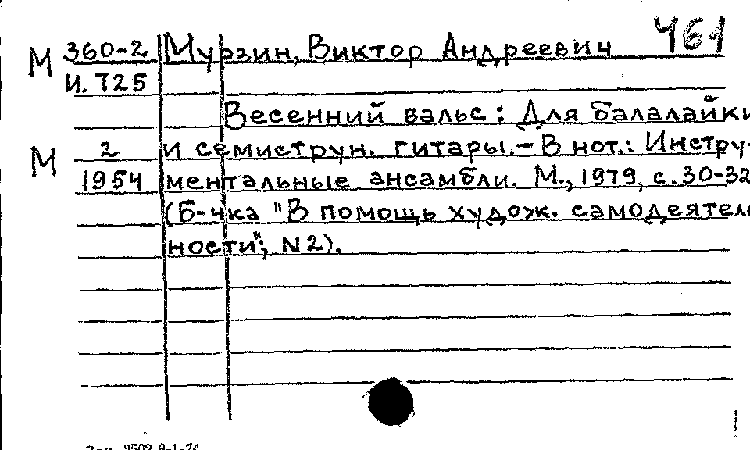 М 360-2 Мурзин, Виктор Андреевич 461
И. 725
Весенний вальс: Для балалайки
М 2 и семиструн. гитары.– В нот.: Инстру-
1954 ментальные ансамбли. М., 1979, с. 30-32
(Б-чка "В помощь худож. самодеятель
ности", N 2).